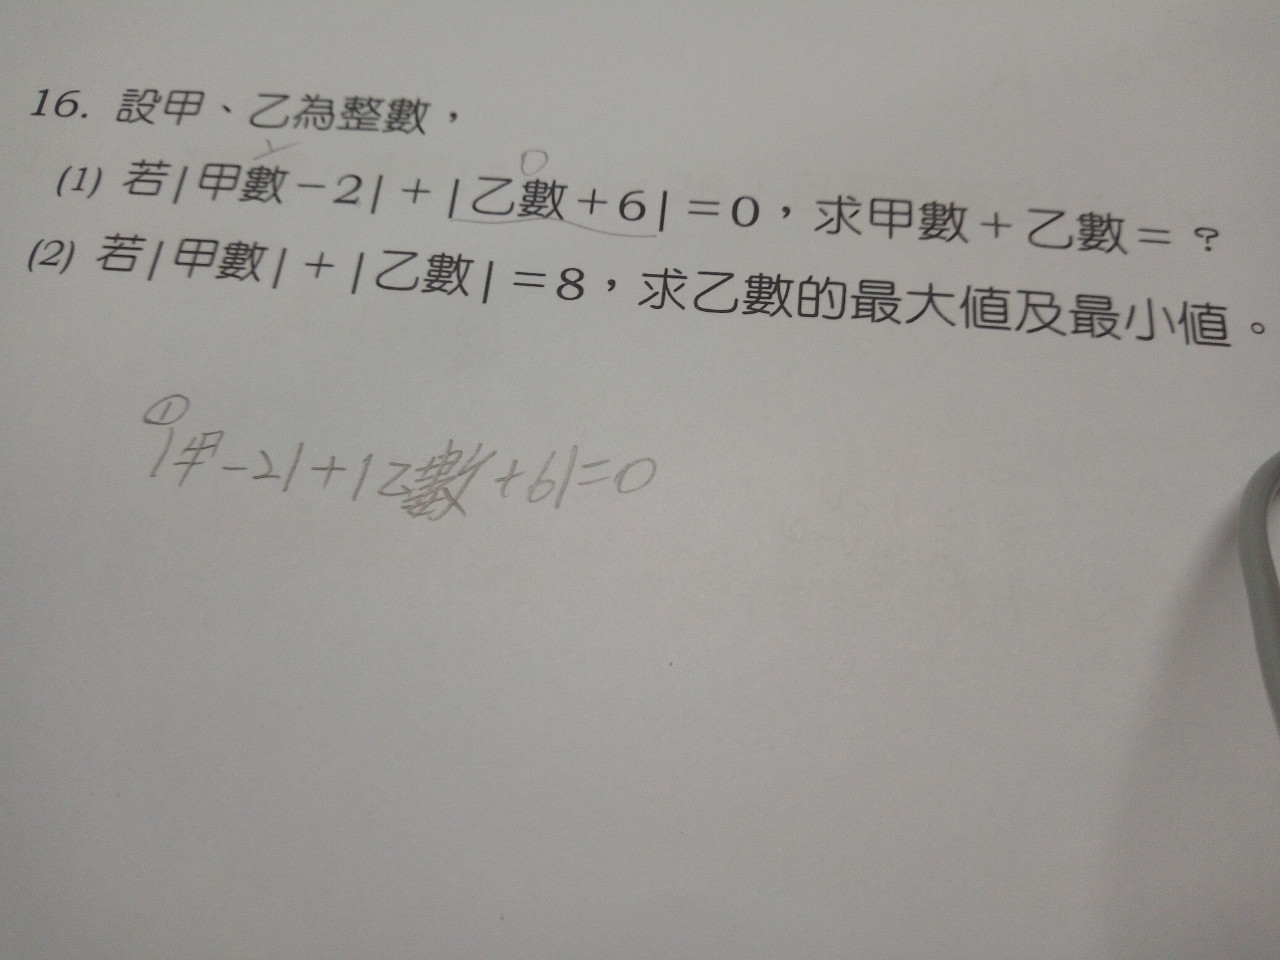 16. 設甲、乙為整數，
(1) 若|甲數－2|＋|乙數＋6|＝0，求甲數＋乙數＝？
(2) 若|甲數|＋|乙數|＝8，求乙數的最大值及最小值。
①
|甲-2|+|乙數+6|=0